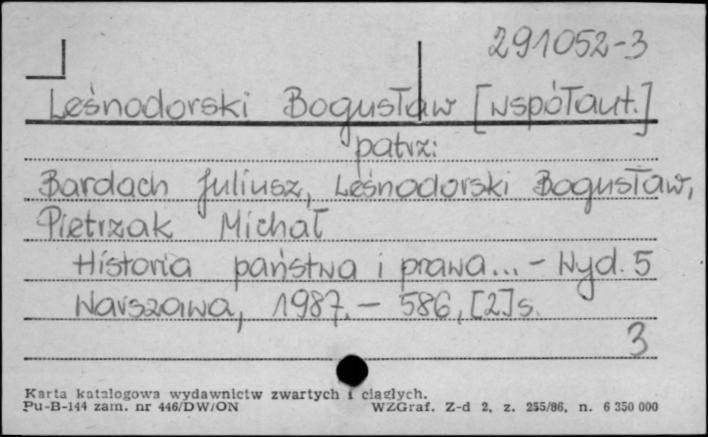 291052-3
Leśnodorski Bogusław [współaut.]
patrz:
Bardach Juliusz, Leśnodorski Bogusław,
Pietrzak Michał
Historia państwa i prawa... - Wyd. 5
Warszawa, 1987. - 586, [2] s.
3
Karta katalogowa wydawnictw zwartych i ciągłych.
Pu-B-144 zam. nr 446/DW/ON WZGraf. Z-d 2, z. 255/86, n. 6 350 000